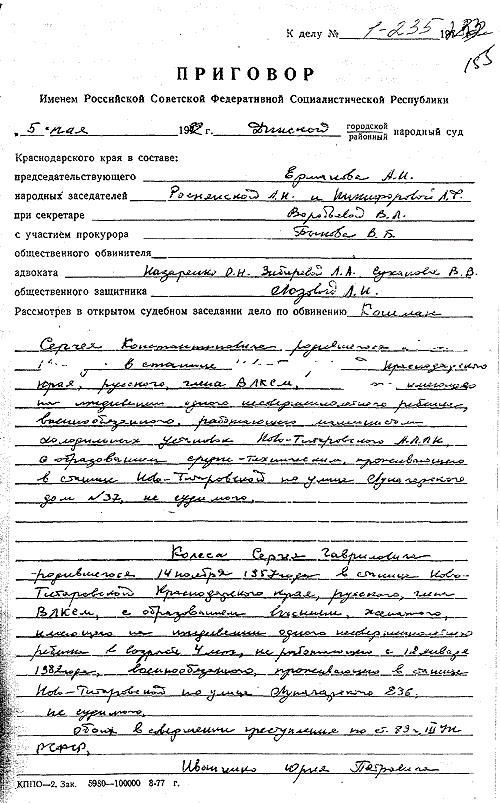 К делу № 1-235 1982
155
ПРИГОВОР
Именем Российской Советской Федеративной Социалистической Республики
5 мая 1982 г. Динской городской районный народный суд
Краснодарского края в составе:
председательствующего А.И.
народных заседателей и Никифоровой Л.Ф.
при секретаре Воробьевой В.Л.
с участием прокурора Быкова В.Б.
общественного обвинителя
адвоката Назаренко О.Н. Л.А. Суханова В.В.
общественного защитника Лозовой Л.И.
Рассмотрев в открытом судебном заседании дело по обвинению Кошман
Сергея Константиновича родившегося
в станице Краснодарского
края, русского, члена ВЛКСМ, имеющего
на иждивении одного несовершеннолетнего ребенка,
военнообязанного, работающего машинистом
холодильных установок Ново-Титаровского
с образованием средне-техническим, проживающего
в станице Ново-Титаровской по улице Луначарского
дом №37, не судимого,
Колеса Сергея Гавриловича
родившегося 14 ноября 1957 года в станице Ново-
Титаровской Краснодарского края, русского, член
ВЛКСМ, с образованием высшим, женатого,
имеющего на иждивении одного несовершеннолетнего
ребенка в возрасте 4 мес, не работающего с 18 января
1982 года, военнообязанного, проживающего в станице
Ново-Титаровской по улице Луначарского 236,
не судимого,
обоих в совершении преступления по ст. 89 ч. III УК
РСФСР,
Иванченко Юрия Петровича
КППО—2. Зак. 5980—100000 8-77 г.